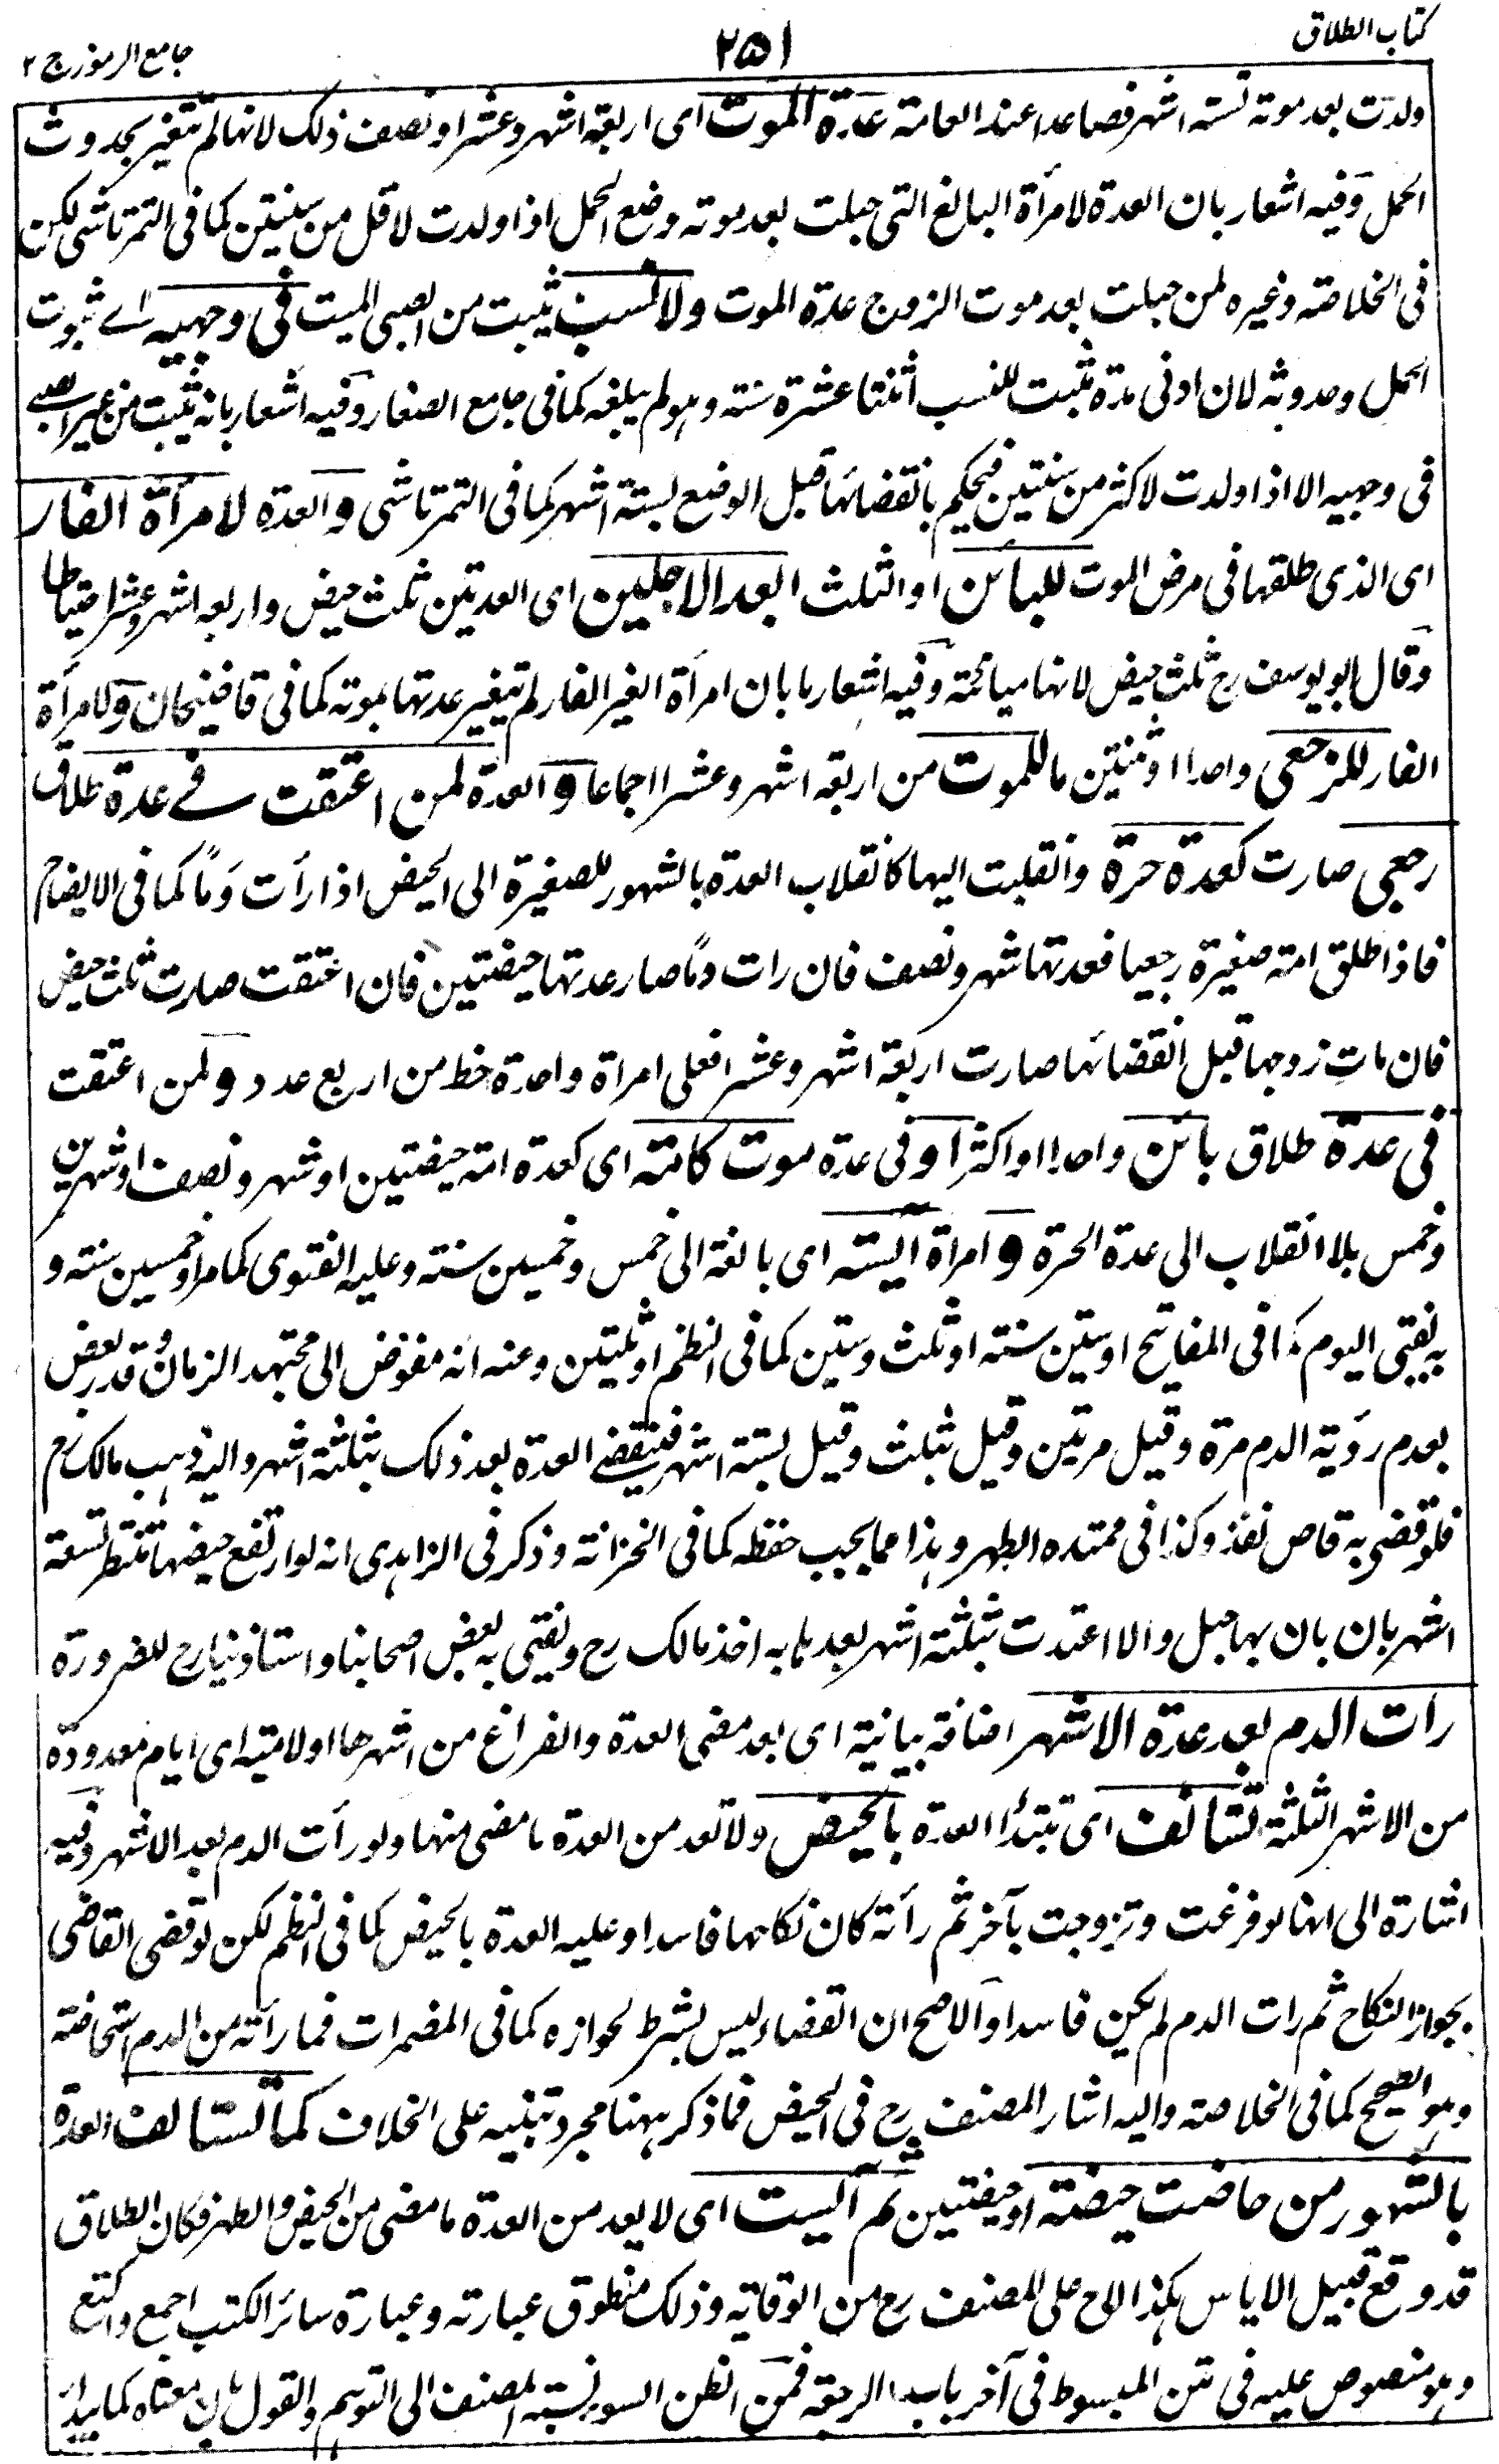 كتاب الطلاق
٢٥١
جامع الرموز ج ٢
ولدت بعد موته لستة اشهر فصاعدا عند العامة عدة الموت اى اربعة اشهر وعشرا او نصف ذلك لانها لم تتغير بحدوث
الحمل وفيه اشعار بان العدة لامرأة البالغ التى حبلت بعد موته وضع الحمل اذا ولدت لاقل من سنتين كما فى التمرتاشى لكن
فى الخلاصة وغيره لمن حبلت بعد موت الزوج عدة الموت ولا نسب يثبت من الصبى الميت فى وجهيه اے ثبوت
الحمل وحدوثه لان ادنى مدة تثبت للنسب اثنتا عشرة سنة وهو لم يبلغه كما فى جامع الصغار وفيه اشعار بانه يثبت من غير الصبے
فى وجهيه الا اذا ولدت لاكثر من سنتين فيحكم بانقضائها قبل الوضع لستة اشهر كما فى التمرتاشى والعدة لامرأة الفار
اى الذى طلقها فى مرض الموت للبائن او الثلث ابعد الاجلين اى العدتين ثلث حيض واربعة اشهر وعشرا احتياطا
وقال ابو يوسف رح ثلث حيض لانها مبائنة وفيه اشعار ما بان امرأة الغير الفار لم يتغير عدتها بموته كما فى قاضيخان ولامرأة
الفار للرجعى واحدا او ثنتين ما للموت من اربعة اشهر وعشرا اجماعا والعدة لمن اعتقت فے عدة طلاق
رجعى صارت كعدة حرة وانقلبت اليها كانقلاب العدة بالشهور للصغيرة الى الحيض اذا رأت دَماً كما فى الايضاح
فاذا طلق امة صغيرة رجعيا فعدتها شهر ونصف فان رات دمًا صار عدتها حيضتين فان اعتقت صارت ثلث حيض
فان مات زوجها قبل انقضائها صارت اربعة اشهر وعشرا فعلى امراة واحدة خط من اربع عدد ولمن اعتقت
فى عدة طلاق بائن واحدا او اكثر او فى عدة موت كامة اى كعدة امة حيضتين او شهر ونصف او شهرين
وخمس بلا انقلاب الى عدة الحرة و امراة آيسة اى بالغة الى خمس وخمسين سنة وعليه الفتوى كما مر او خمسين سنة و
به يفتى اليوم كذا فى المفاتيح او ستين سنة او ثلث وستين كما فى النظم او ثلثين وعنه انه مفوض الى مجتهد الزمان وقدر بعض
بعدم رؤية الدم مرة وقيل مرتين وقيل بثلث وقيل بستة اشهر فينقضے العدة بعد ذلك بثلثة اشهر واليه ذهب مالك رح
فلو قضى به قاض نفذ وكذا فى ممتدة الطهر وهذا مما يجب حفظه كما فى الخزانة وذكر فى الزاهدى انه لو ارتفع حيضها تنتظر تسعة
اشهر بان بان بها حبل والا اعتدت بثلثة اشهر بعدها به اخذ مالك رح ويفتى به بعض اصحابنا واستاذينا رح للضرورة
رات الدم بعد عدة الاشهر اضافة بيانية اى بعد مضى العدة والفراغ من اشهرها او لامية اى ايام معدودة
من الاشهر الثلثة تستانف اى تبتدأ العدة بالحيض ولا تعد من العدة ما مضى منها ولو رأت الدم بعد الاشهر وفيه
اشارة الى انها لو فرغت وتزوجت بآخر ثم رأته كان نكاحها فاسدا وعليه العدة بالحيض كما فى النظم لكن لو قضى القاضى
بجواز النكاح ثم رات الدم لم يكن فاسدا والاصح ان القضاء ليس بشرط لجوازه كما فى المضمرات فما رأته من الدم استحاضة
وهو الصحيح كما فى الخلاصة واليه اشار المصنف رح فى الحيض فما ذكر ههنا مجرد تنبيه على الخلاف كما تستانف العدة
بالشهور من حاضت حيضة او حيضتين ثم آيست اى لا يعد من العدة ما مضى من الحيض والطهر فكان الطلاق
قد وقع قبيل الاياس هكذا لاح على المصنف رح من الوقاية وذلك منطوق عبارته وعبارة سائر الكتب اجمع واكتع
وهو منصوص عليه فى متن المبسوط فى آخر باب الرجعة فمن الظن السوء نسبة المصنف الى التوهم والقول بان معناه